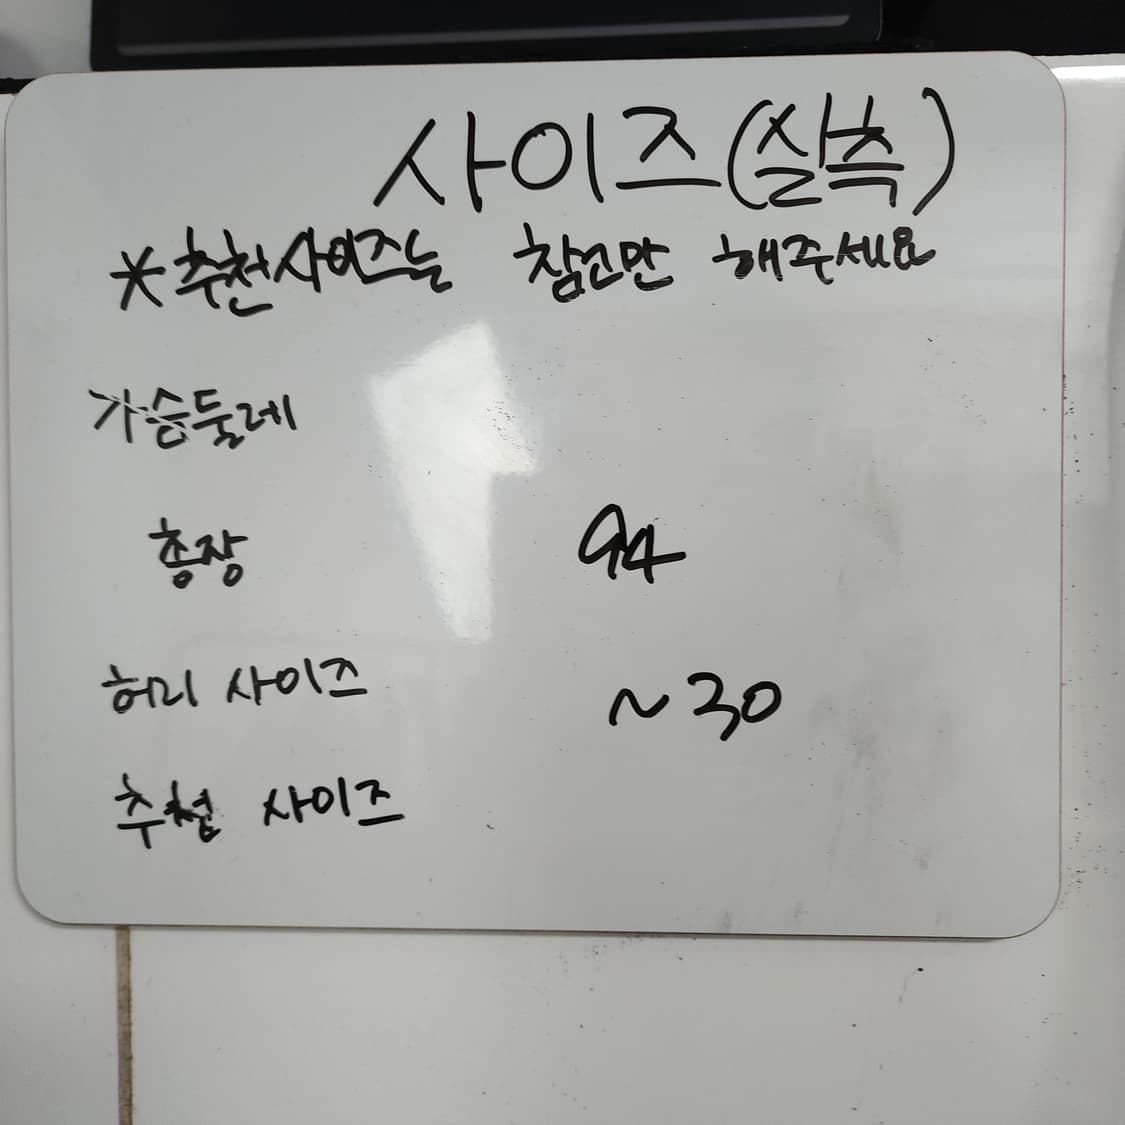 사이즈(실측)
*추천사이즈는 참고만 해주세요
가슴둘레
총장 94
허리 사이즈 ~30
추천 사이즈